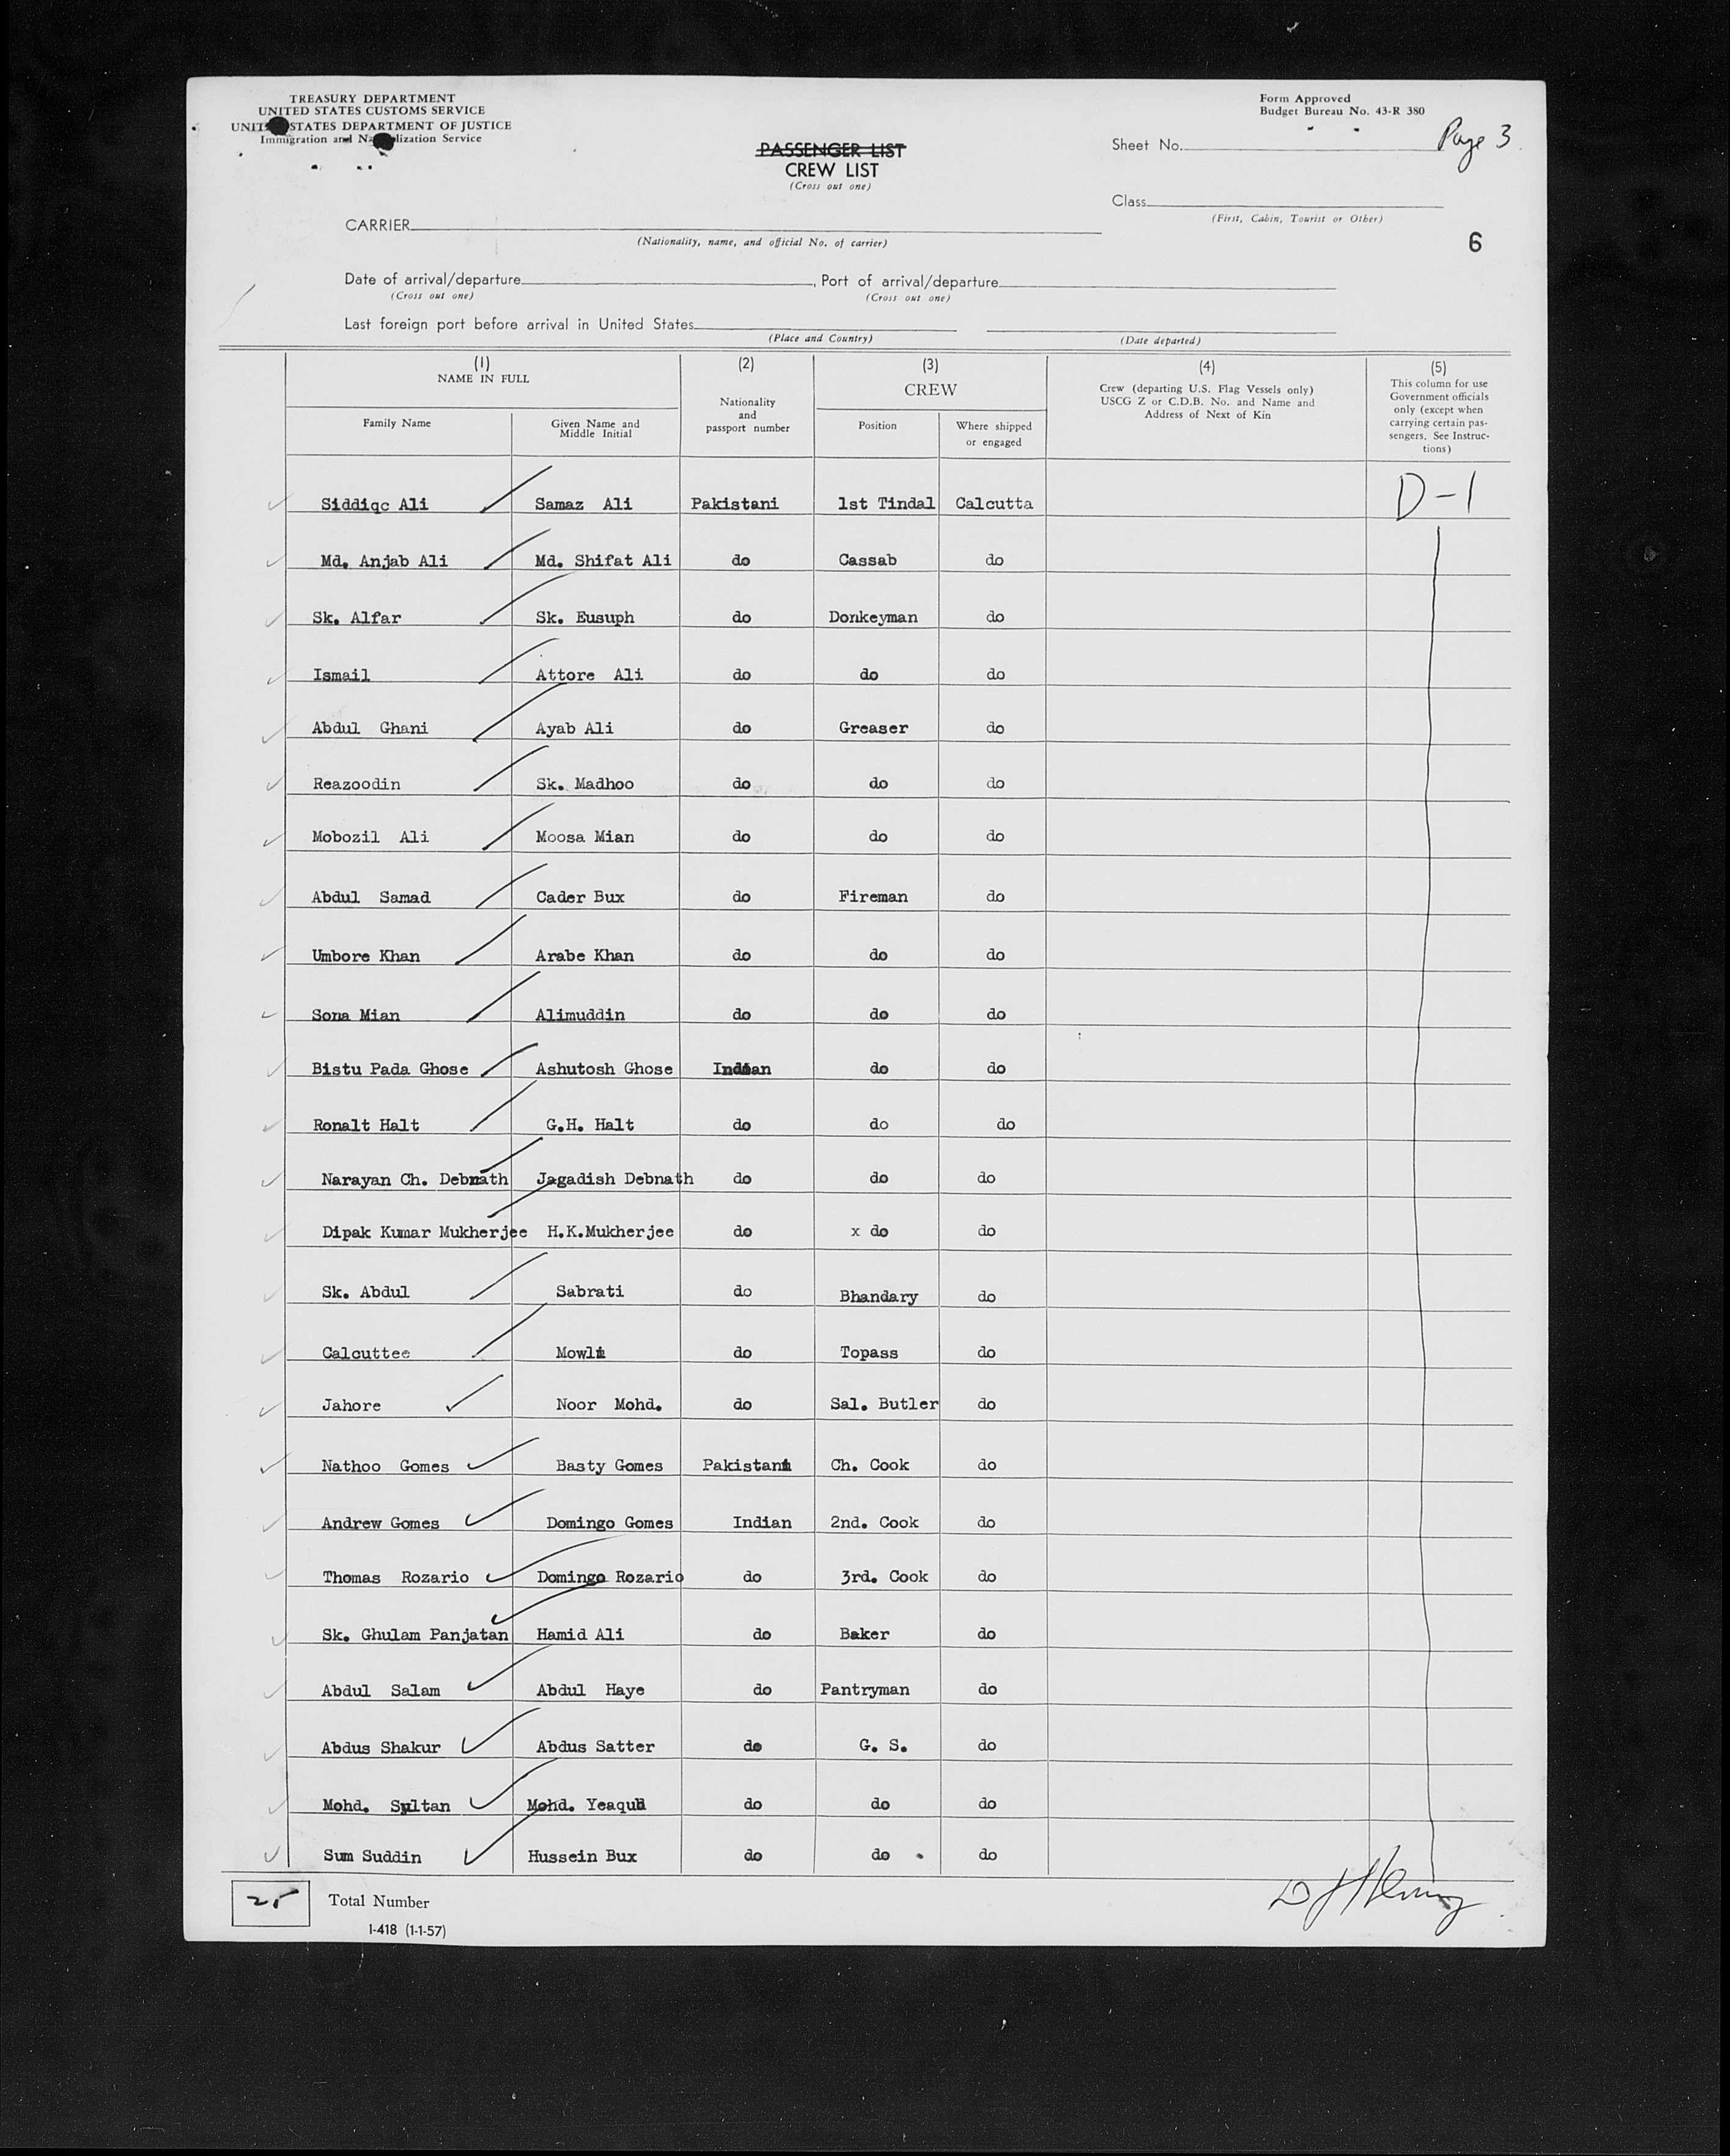 TREASURY DEPARTMENT
UNITED STATES CUSTOMS SERVICE
UNITED STATES DEPARTMENT OF JUSTICE
Immigration and Naturalization Service
Form Approved
Budget Bureau No. 43-R 380
PASSENGER LIST
CREW LIST
(Cross out one)
Sheet No. Page 3
Class
(First, Cabin, Tourist or Other)
CARRIER
(Nationality, name, and official No. of carrier)
6
Date of arrival/departure, Port of arrival/departure
(Cross out one) (Cross out one)
Last foreign port before arrival in United States
(Place and Country) (Date departed)
(1) (2) (3) (4) (5)
NAME IN FULL Nationality and passport number CREW Crew (departing U.S. Flag Vessels only) USCG Z or C.D.B. No. and Name and Address of Next of Kin This column for use Government officials only (except when carrying certain passengers. See Instructions)
Family Name Given Name and Middle Initial Position Where shipped or engaged
Siddiqc Ali Samaz Ali Pakistani 1st Tindal Calcutta D-1
Md. Anjab Ali Md. Shifat Ali do Cassab do
Sk. Alfar Sk. Eusuph do Donkeyman do
Ismail Attore Ali do do do
Abdul Ghani Ayab Ali do Greaser do
Reazoodin Sk. Madhoo do do do
Mobozil Ali Moosa Mian do do do
Abdul Samad Cader Bux do Fireman do
Umbore Khan Arabe Khan do do do
Sona Mian Alimuddin do do do
Bistu Pada Ghose Ashutosh Ghose Indian do do
Ronalt Halt G.H. Halt do do do
Narayan Ch. Debnath Jagadish Debnath do do do
Dipak Kumar Mukherjee H.K.Mukherjee do x do do
Sk. Abdul Sabrati do Bhandary do
Calcuttee Mowli do Topass do
Jahore Noor Mohd. do Sal. Butler do
Nathoo Gomes Basty Gomes Pakistani Ch. Cook do
Andrew Gomes Domingo Gomes Indian 2nd. Cook do
Thomas Rozario Domingo Rozario do 3rd. Cook do
Sk. Ghulam Panjatan Hamid Ali do Baker do
Abdul Salam Abdul Haye do Pantryman do
Abdus Shakur Abdus Satter do G. S. do
Mohd. Sultan Mohd. Yeaqub do do do
Sum Suddin Hussein Bux do do do
25 Total Number
I-418 (1-1-57)